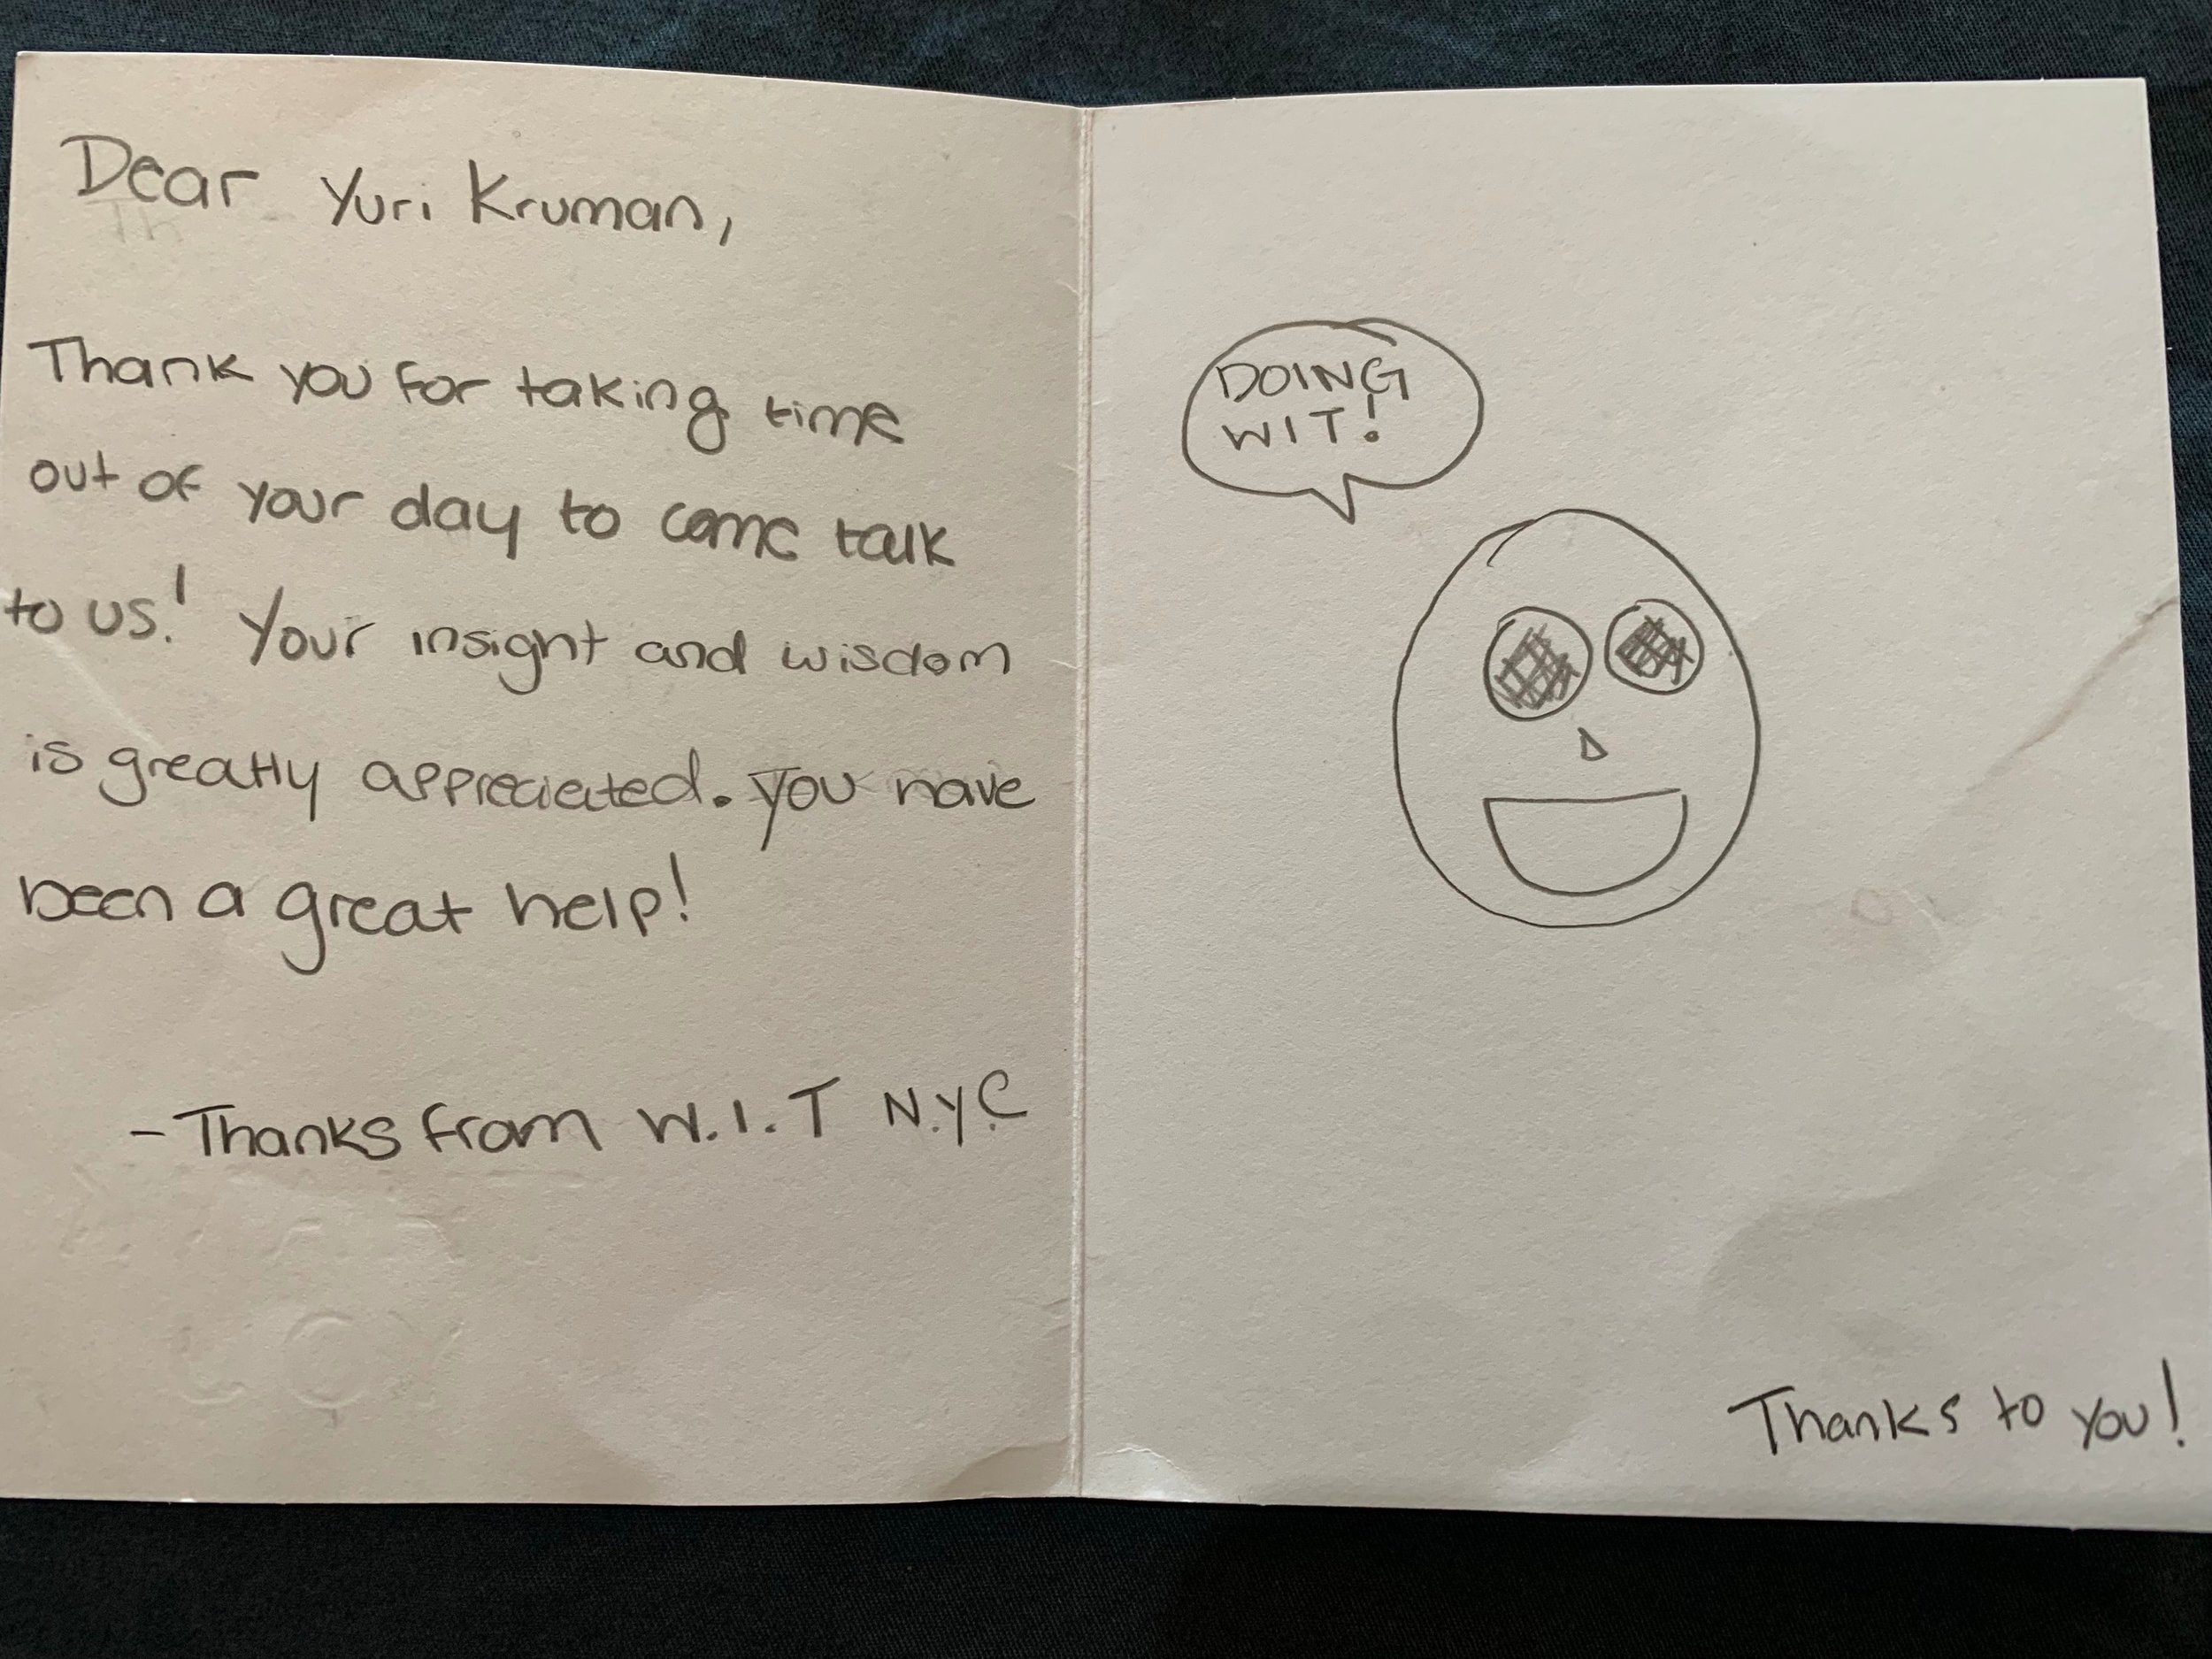 Dear Yuri Kruman,
Th
Thank you for taking time
out of your day to come talk
to us! Your insight and wisdom
is greatly appreciated. You have
been a great help!
- Thanks from W.I.T N.Y.C
DOING
WIT!
Thanks to you!